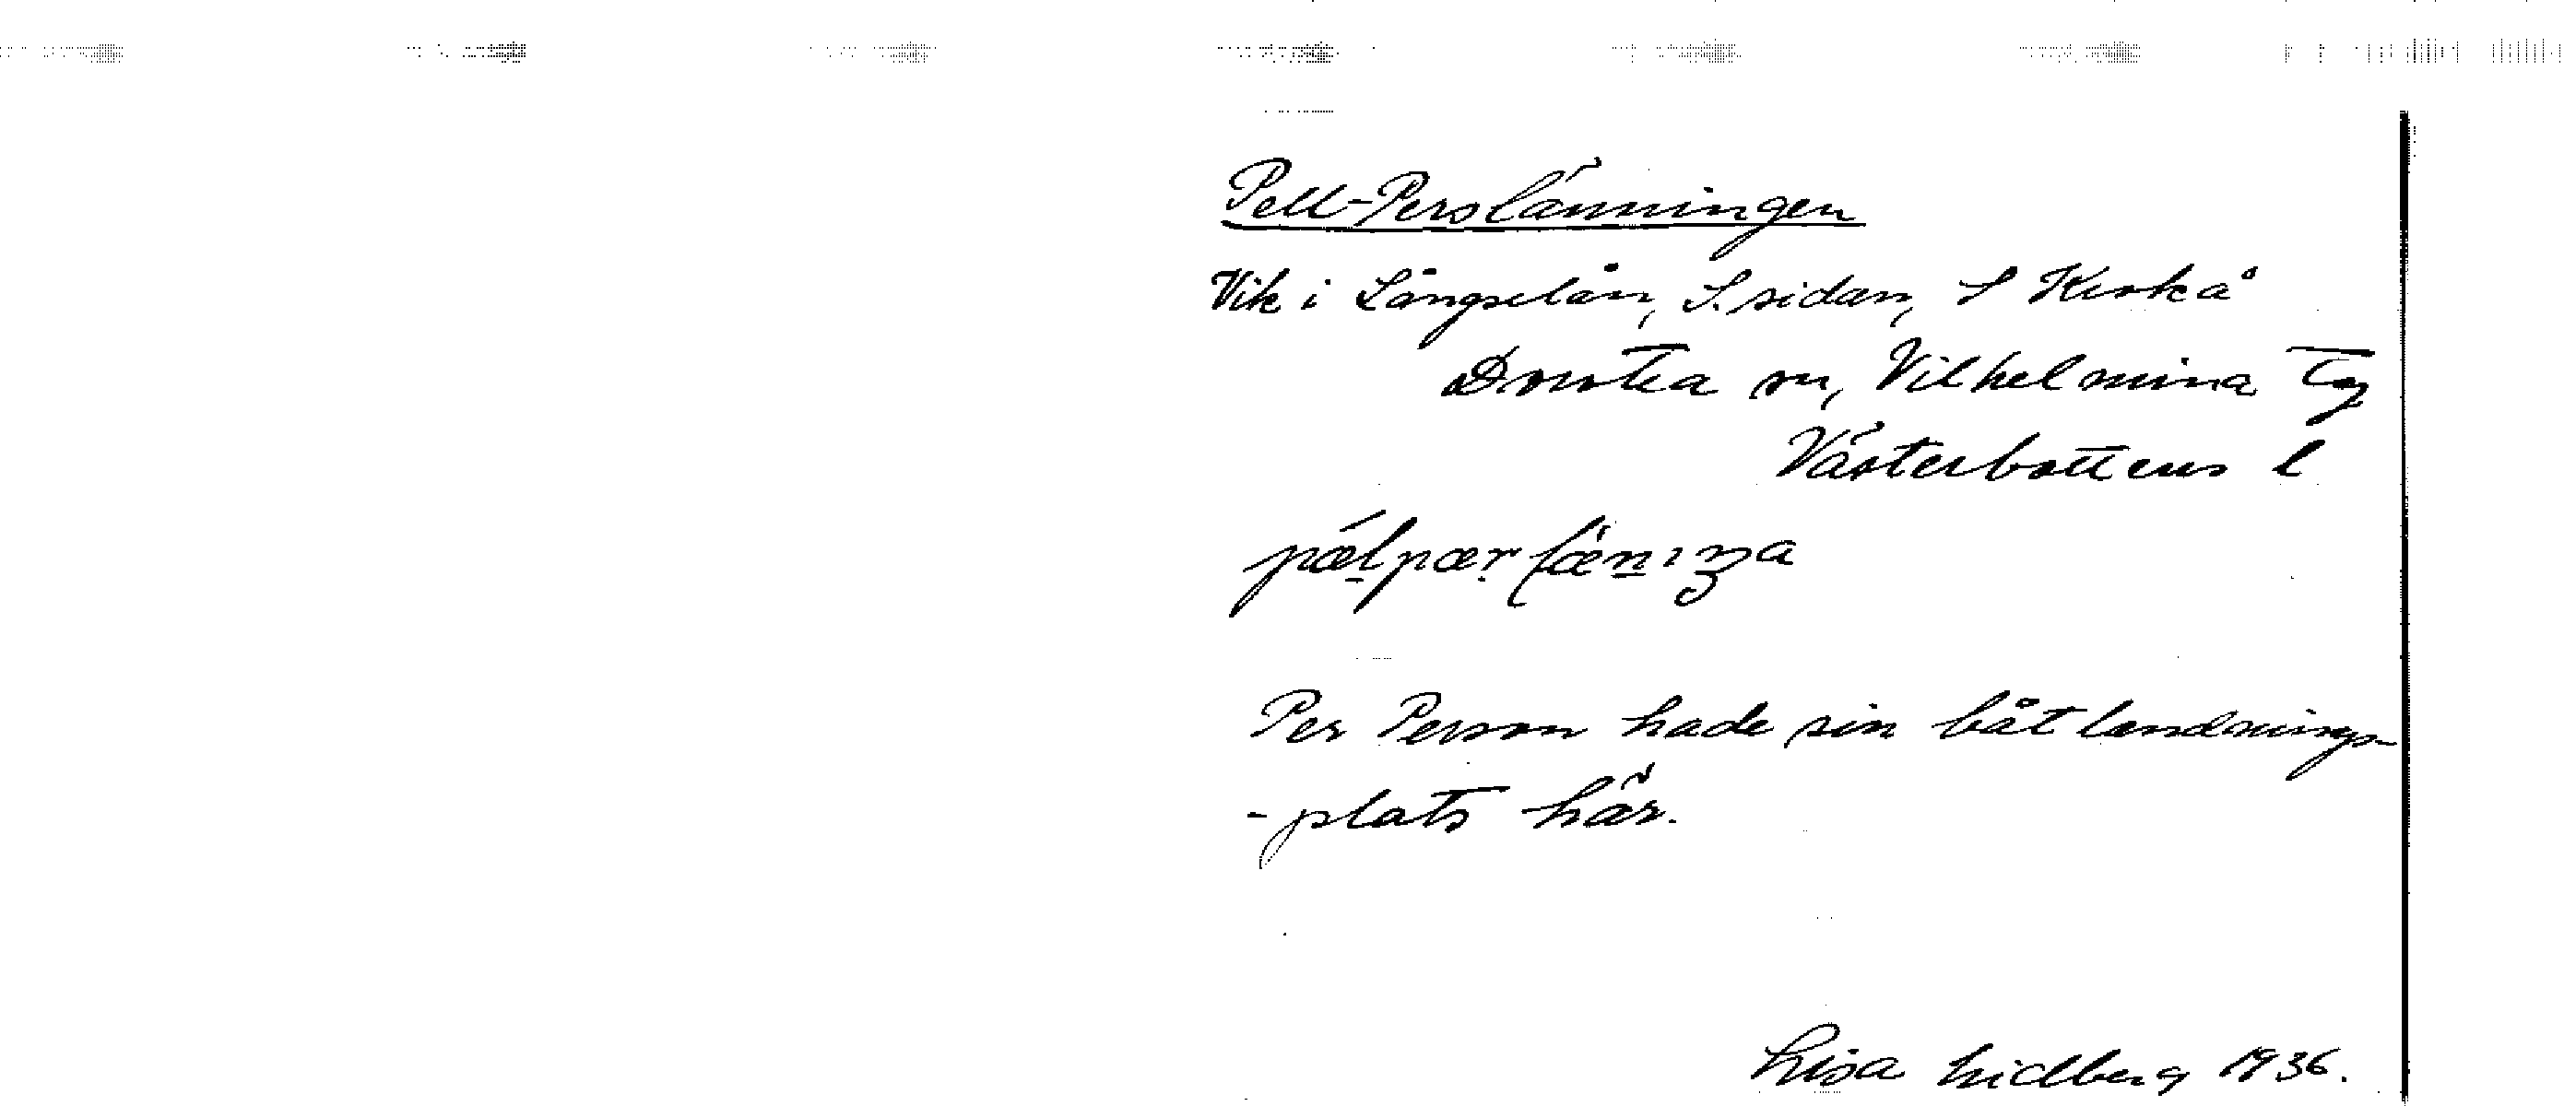 Pell-Perslänningen
Vik i Långselån, S. sidan, S Krokå
Dorotea sn, Vilhelmina Tg
Västerbottens l
pælpær länıŋa
Per Person hade sin båtlandnings-
-plats här.
Lisa Lidberg 1936.